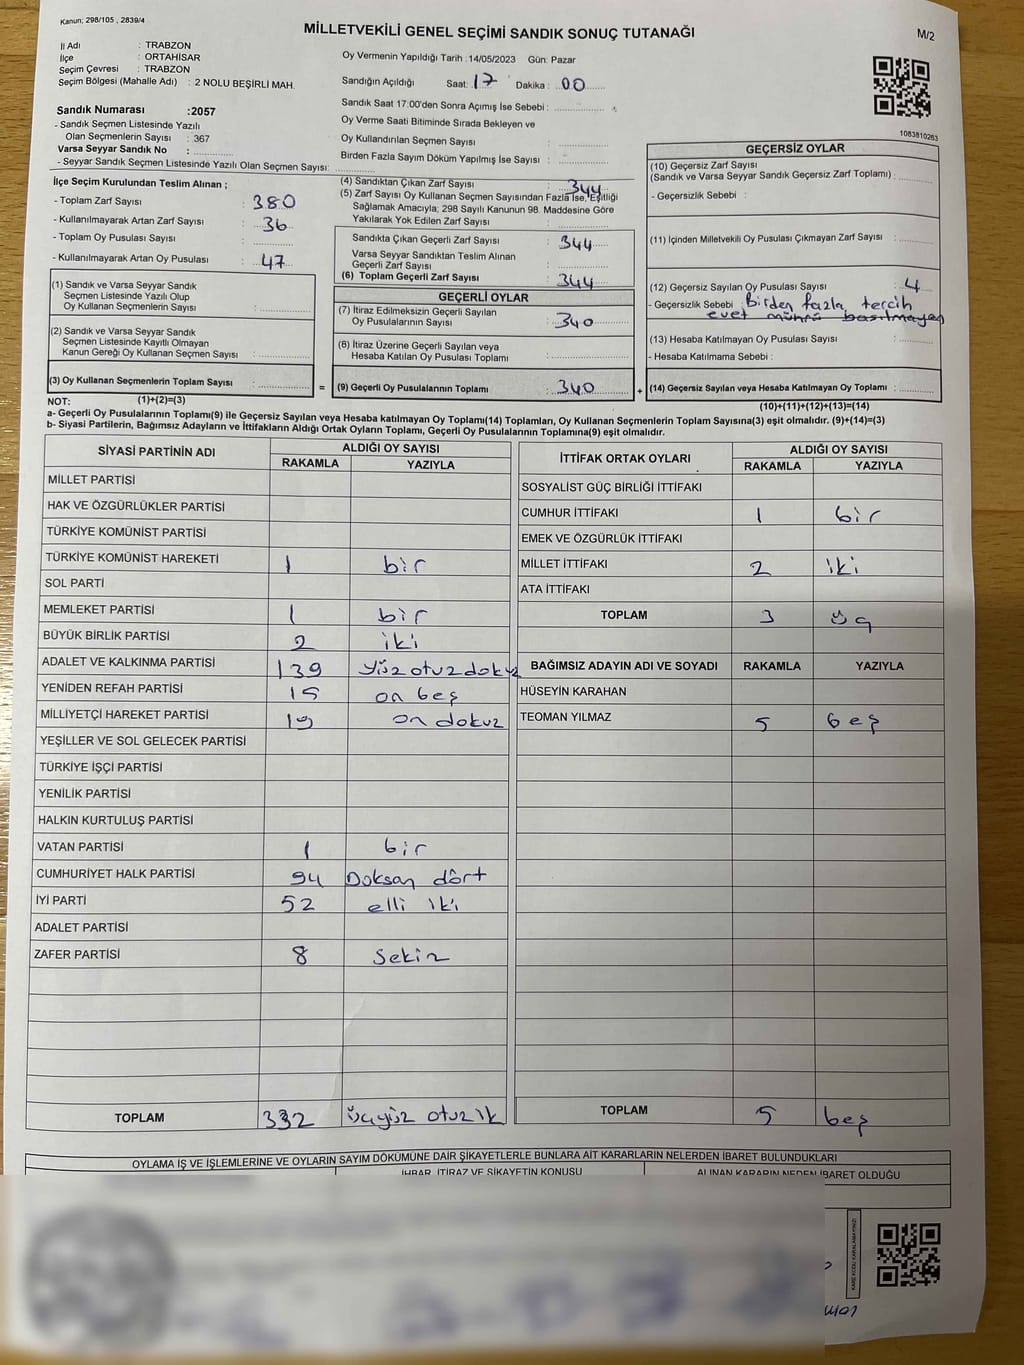 Kanun; 298/105 , 2839/4
MİLLETVEKİLİ GENEL SEÇİMİ SANDIK SONUÇ TUTANAĞI
M/2
İl Adı : TRABZON
İlçe : ORTAHİSAR
Seçim Çevresi : TRABZON
Seçim Bölgesi (Mahalle Adı) : 2 NOLU BEŞİRLİ MAH.
Sandık Numarası :2057
- Sandık Seçmen Listesinde Yazılı
Olan Seçmenlerin Sayısı : 367
Varsa Seyyar Sandık No :
- Seyyar Sandık Seçmen Listesinde Yazılı Olan Seçmen Sayısı:
Oy Vermenin Yapıldığı Tarih :14/05/2023 Gün: Pazar
Sandığın Açıldığı Saat: 17 Dakika : 00
Sandık Saat 17:00'den Sonra Açımış İse Sebebi :
Oy Verme Saati Bitiminde Sırada Bekleyen ve
Oy Kullandırılan Seçmen Sayısı :
Birden Fazla Sayım Döküm Yapılmış İse Sayısı :
1083810263
İlçe Seçim Kurulundan Teslim Alınan ;
- Toplam Zarf Sayısı : 380
- Kullanılmayarak Artan Zarf Sayısı : 36
- Toplam Oy Pusulası Sayısı :
- Kullanılmayarak Artan Oy Pusulası : 47
(1) Sandık ve Varsa Seyyar Sandık
Seçmen Listesinde Yazılı Olup
Oy Kullanan Seçmenlerin Sayısı :
(2) Sandık ve Varsa Seyyar Sandık
Seçmen Listesinde Kayıtlı Olmayan
Kanun Gereği Oy Kullanan Seçmen Sayısı :
(3) Oy Kullanan Seçmenlerin Toplam Sayısı :
(1)+(2)=(3)
(4) Sandıktan Çıkan Zarf Sayısı : 344
(5) Zarf Sayısı Oy Kullanan Seçmen Sayısından Fazla İse, Eşitliği
Sağlamak Amacıyla; 298 Sayılı Kanunun 98. Maddesine Göre
Yakılarak Yok Edilen Zarf Sayısı :
Sandıkta Çıkan Geçerli Zarf Sayısı : 344
Varsa Seyyar Sandıktan Teslim Alınan
Geçerli Zarf Sayısı :
(6) Toplam Geçerli Zarf Sayısı : 344
GEÇERLİ OYLAR
(7) İtiraz Edilmeksizin Geçerli Sayılan
Oy Pusulalarının Sayısı : 340
(8) İtiraz Üzerine Geçerli Sayılan veya
Hesaba Katılan Oy Pusulası Toplamı :
= (9) Geçerli Oy Pusulalarının Toplamı : 340 +
GEÇERSİZ OYLAR
(10) Geçersiz Zarf Sayısı
(Sandık ve Varsa Seyyar Sandık Geçersiz Zarf Toplamı) :
- Geçersizlik Sebebi :
(11) İçinden Milletvekili Oy Pusulası Çıkmayan Zarf Sayısı :
(12) Geçersiz Sayılan Oy Pusulası Sayısı : 4
- Geçersizlik Sebebi : Birden fazla tercih
evet mührü basılmayan
(13) Hesaba Katılmayan Oy Pusulası Sayısı :
- Hesaba Katılmama Sebebi :
(14) Geçersiz Sayılan veya Hesaba Katılmayan Oy Toplamı :
(10)+(11)+(12)+(13)=(14)
NOT:
a- Geçerli Oy Pusulalarının Toplamı(9) ile Geçersiz Sayılan veya Hesaba katılmayan Oy Toplamı(14) Toplamları, Oy Kullanan Seçmenlerin Toplam Sayısına(3) eşit olmalıdır. (9)+(14)=(3)
b- Siyasi Partilerin, Bağımsız Adayların ve İttifakların Aldığı Ortak Oyların Toplamı, Geçerli Oy Pusulalarının Toplamına(9) eşit olmalıdır.
SİYASİ PARTİNİN ADI ALDIĞI OY SAYISI
RAKAMLA YAZIYLA
MİLLET PARTİSİ
HAK VE ÖZGÜRLÜKLER PARTİSİ
TÜRKİYE KOMÜNİST PARTİSİ
TÜRKİYE KOMÜNİST HAREKETİ 1 bir
SOL PARTİ
MEMLEKET PARTİSİ 1 bir
BÜYÜK BİRLİK PARTİSİ 2 iki
ADALET VE KALKINMA PARTİSİ 139 yüz otuz dokuz
YENİDEN REFAH PARTİSİ 15 on beş
MİLLİYETÇİ HAREKET PARTİSİ 19 on dokuz
YEŞİLLER VE SOL GELECEK PARTİSİ
TÜRKİYE İŞÇİ PARTİSİ
YENİLİK PARTİSİ
HALKIN KURTULUŞ PARTİSİ
VATAN PARTİSİ 1 bir
CUMHURİYET HALK PARTİSİ 94 Doksan dört
İYİ PARTİ 52 elli iki
ADALET PARTİSİ
ZAFER PARTİSİ 8 Sekiz
TOPLAM 332 üçyüz otuz ik
İTTİFAK ORTAK OYLARI ALDIĞI OY SAYISI
RAKAMLA YAZIYLA
SOSYALİST GÜÇ BİRLİĞİ İTTİFAKI
CUMHUR İTTİFAKI 1 bir
EMEK VE ÖZGÜRLÜK İTTİFAKI
MİLLET İTTİFAKI 2 iki
ATA İTTİFAKI
TOPLAM 3 üç
BAĞIMSIZ ADAYIN ADI VE SOYADI RAKAMLA YAZIYLA
HÜSEYİN KARAHAN
TEOMAN YILMAZ 5 beş
TOPLAM 5 beş
OYLAMA İŞ VE İŞLEMLERİNE VE OYLARIN SAYIM DÖKÜMÜNE DAİR ŞİKAYETLERLE BUNLARA AİT KARARLARIN NELERDEN İBARET BULUNDUKLARI
İHBAR, İTİRAZ VE ŞİKAYETİN KONUSU ALINAN KARARIN NEDEN İBARET OLDUĞU